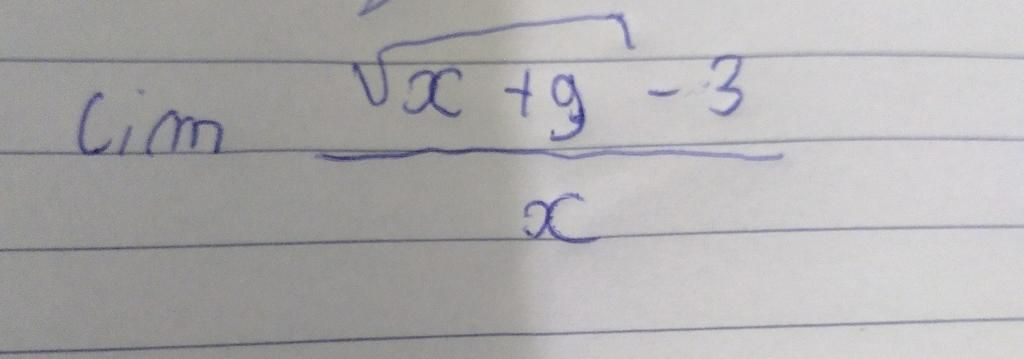 lim (√(x + 9) - 3) / x